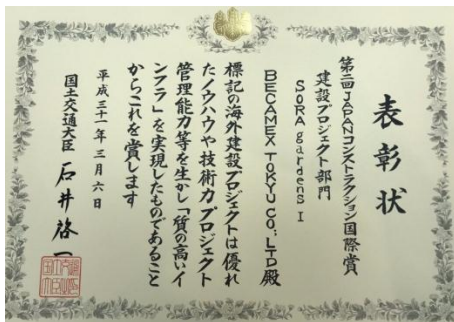 表彰状
第二回JAPANコンストラクション国際賞
建設プロジェクト部門
SORA gardens I
BECAMEX TOKYU CO., LTD 殿
標記の海外建設プロジェクトは優れ
たノウハウや技術力プロジェクト
管理能力等を生かし「質の高いイ
ンフラ」を実現したものであること
からこれを賞します
平成三十一年三月六日
国土交通大臣 石井啓一